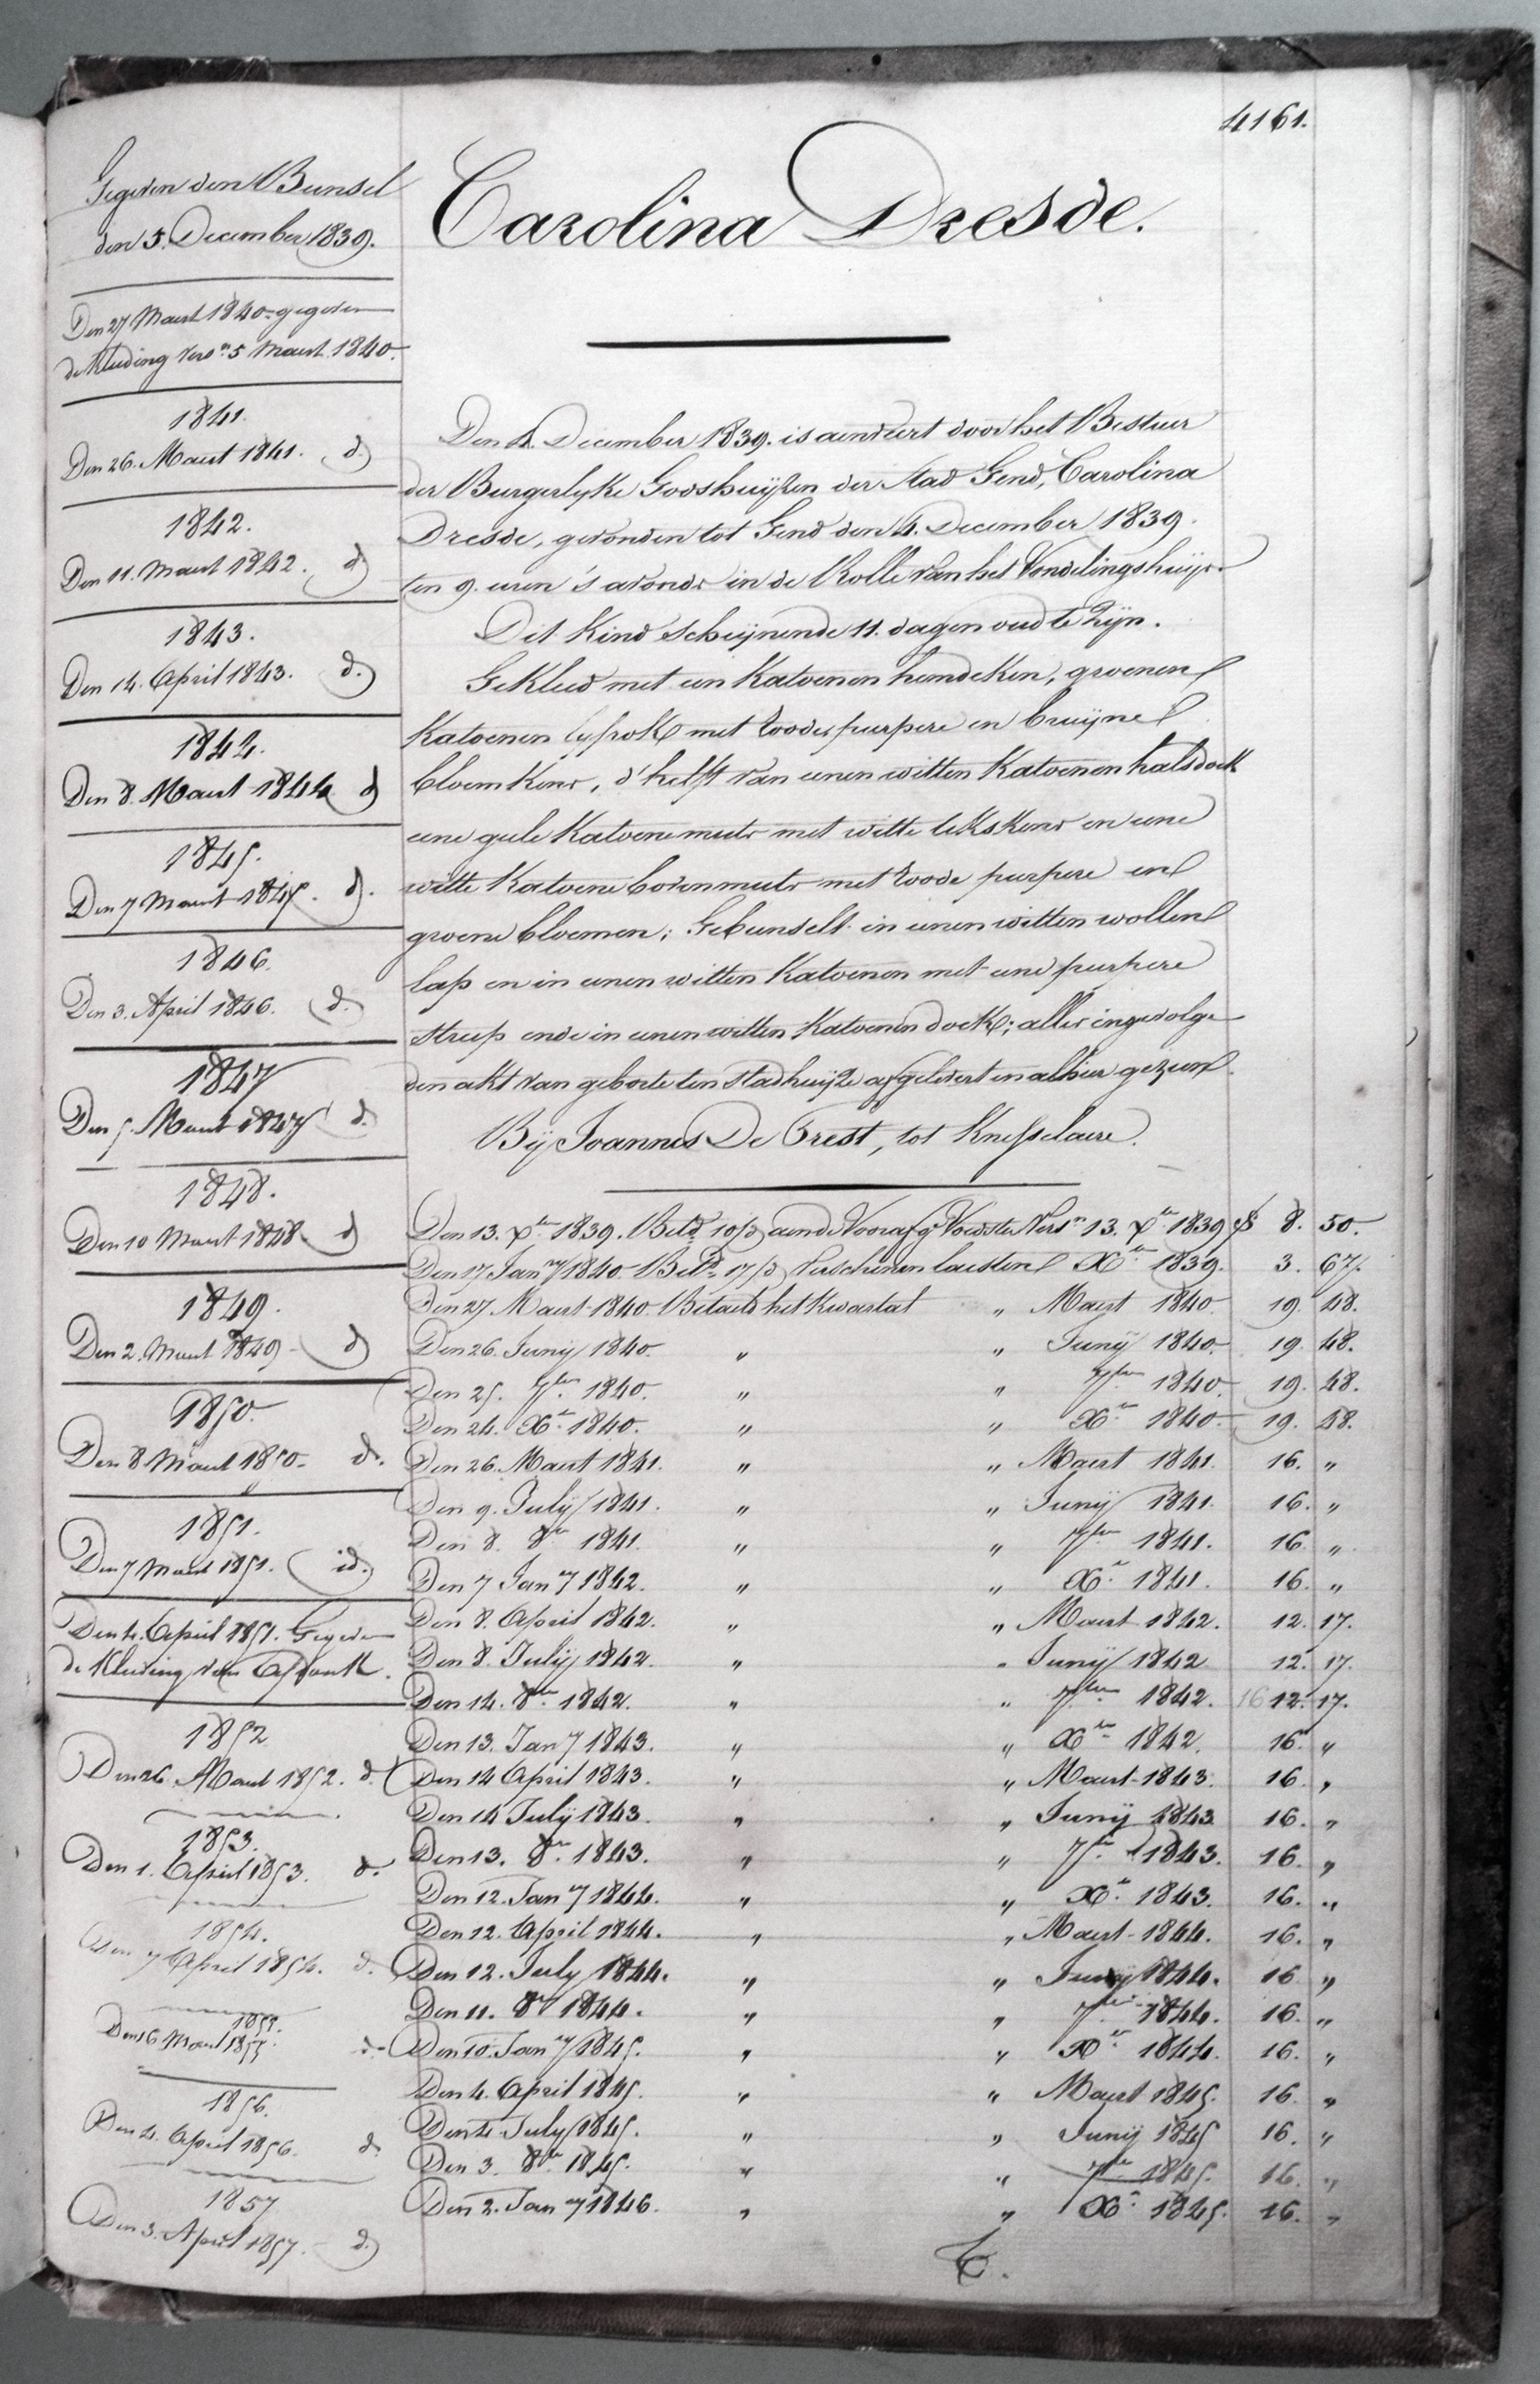 4161.
Carolina Dresde.
Gegeven den Bunsel
den 5. December 1839.
Den 27 Maert 1840 gegeven
de Kleeding Versn 5 Maert 1840.
1841.
Den 26. Maert 1841. d.
1842.
Den 11. Maert 1842. d.
1843.
Den 14. April 1843. d.
1844.
Den 8. Maert 1844 d
1845.
Den 7 Maert 1845. d.
1846.
Den 3. April 1846. d.
1847
Den 5. Maert 1847 d.
1848.
Den 10 Maert 1848 d
1849.
Den 2. Maert 1849 d
1850.
Den 8 Maert 1850. d.
1851.
Den 7 Maert 1851. id.
Den 4. April 1851. Gegeven
de Kleeding van
1852
Den 26. Maert 1852. d.
1853.
Den 1. April 1853. d.
1854.
Den 7 April 1854. d.
1855.
Den 16 Maert 1855. d.
1856.
Den 4. April 1856. d.
1857
Den 3. April 1857. d.
Den 4. December 1839. is aenveert door het Bestuer
der Burgerlyke Godshuyzen der Stad Gend, Carolina
Dresde, gevonden tot Gend den 4. December 1839.
ten 9. uren 's avonds in de Rolle van het Vondelingshuys.
Dit Kind schynende 11. dagen oud te Zyn.
Gekleed met een Katoenen hemdeken, groenen
Katoenen lyfrok met roode, purpere en bruyne
bloemkens, d'helft van eenen witten Katoenen halsdoek
eene geele Katoene muts met witte lekskens en eene
witte Katoene bovenmuts met roode purpere en
groene bloemen; Gebunselt in eenen witten wollen
lap en in eenen witten Katoenen met eene purpere
streep ende in eenen witten Katoenen doek; alles ingevolge
den akt van geboorte ten stadhuyze afgelevert en alhier gezien.
By Joannes De Crest, tot Knesselaere.
Den 13. Xber 1839. Betd 10/3 aen de Voorafge Voedster Versn 13. Xber 1839 f 8. 50.
Den 17 Jany 1840. Betd 17/3 Verschenen laesten Xber 1839. 3. 67.
Den 27. Maert 1840. Betaeld het Kwartal „ Maert 1840. 19. 48.
Den 26. Juny 1840. „ „ Juny 1840. 19. 48.
Den 25. 7ber 1840. „ „ 7ber 1840. 19. 48.
Den 24. Xr 1840. „ „ Xr 1840. 19. 48.
Den 26. Maert 1841. „ „ Maert 1841. 16. „
Den 9. July 1841. „ „ Juny 1841. 16. „
Den 8. 8r 1841. „ „ 7ber 1841. 16. „
Den 7 Jany 1842. „ „ Xr 1841. 16. „
Den 8. April 1842. „ „ Maert 1842. 12. 17.
Den 8. July 1842. „ „ Juny 1842 12. 17.
Den 14. 8ber 1842. „ „ 7ber 1842. 16 12. 17.
Den 13. Jany 1843. „ „ Xber 1842. 16. „
Den 14 April 1843. „ „ Maert 1843. 16. „
Den 14 July 1843. „ „ Juny 1843 16. „
Den 13. 8r 1843. „ „ 7r 1843. 16. „
Den 12. Jany 1844. „ „ Xr 1843. 16. „
Den 12. April 1844. „ „ Maert 1844. 16. „
Den 12. July 1844. „ „ Juny 1844. 16 „
Den 11. 8r 1844. „ „ 7ber 1844. 16. „
Den 10. Jany 1845. „ „ Xr 1844. 16. „
Den 4. April 1845. „ „ Maert 1845. 16. „
Den 4. July 1845. „ „ Juny 1845 16. „
Den 3. 8br 1845. „ „ 7ber 1845. 16. „
Den 2. Jany 1846. „ „ Xr 1845. 16. „